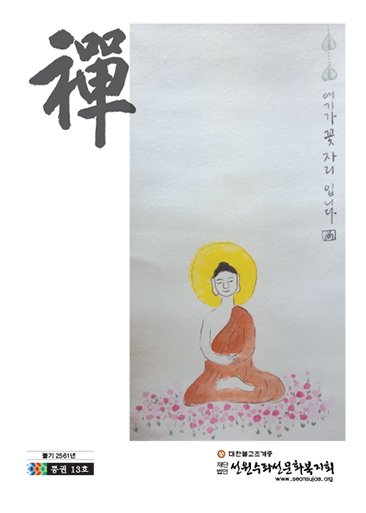 禪
여기가 꽃자리 입니다.
불기 2561년
통권 13호
대한불교조계종
재단
법인 선원수좌선문화복지회
www.seonsujoa.org